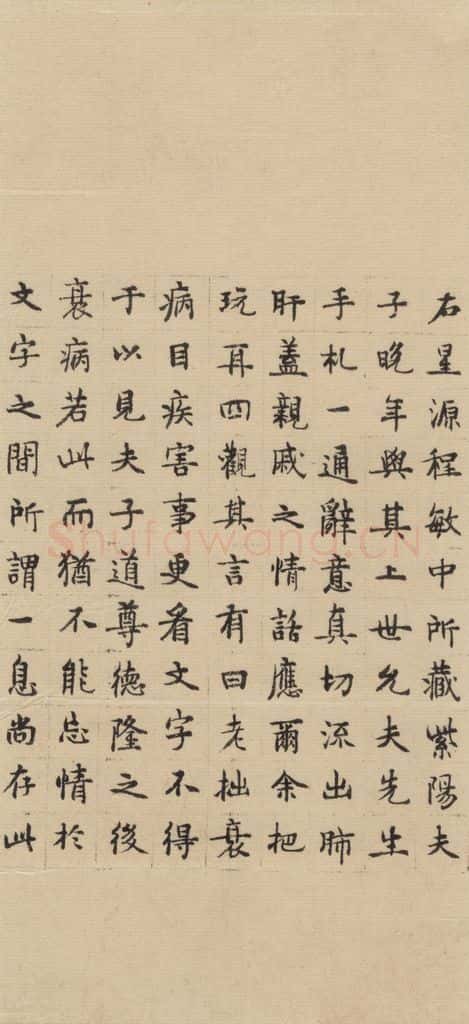 右星源程敏中所藏紫陽夫
子晚年與其上世允夫先生
手札一通辭意真切流出肺
肝蓋親戚之情話應爾余把
玩再四觀其言有曰老拙衰
病目疾害事更看文字不得
于以見夫子道尊德隆之後
衰病若此而猶不能忘情於
文字之間所謂一息尚存此
Shufawang.CN